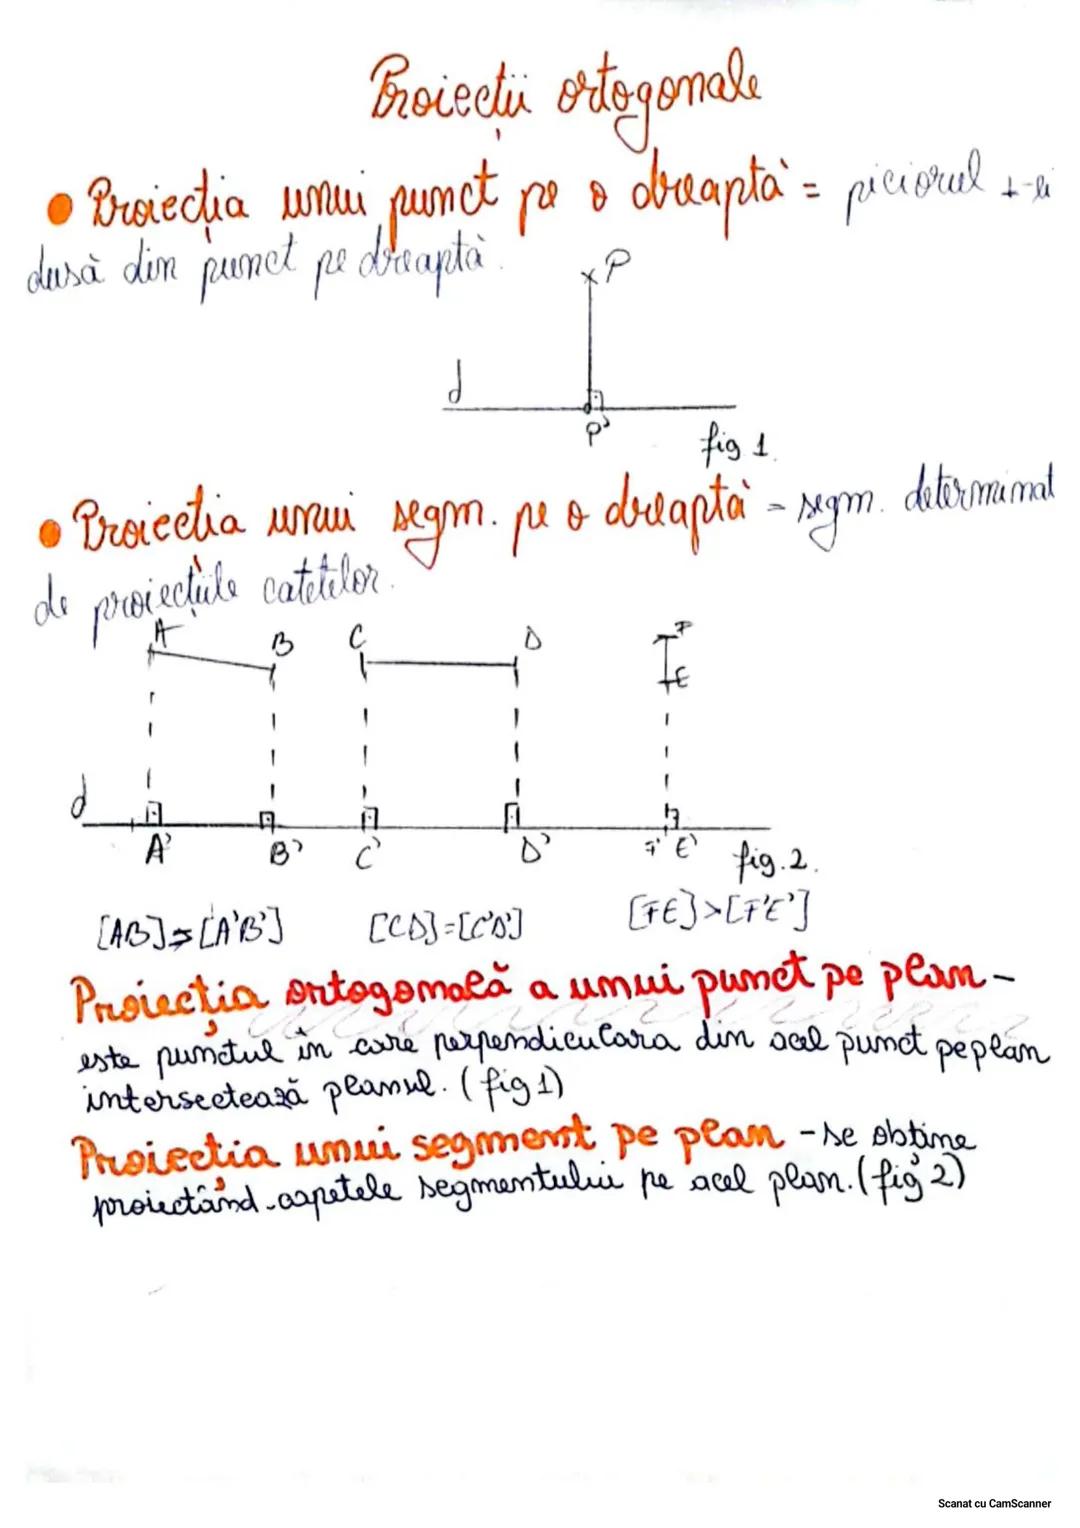 Proiecții ortogonale
• Proiecția unui punct pe o dreaptă = piciorul ⊥-ei
dusă din punct pe dreaptă.
P
d
P'
fig 1.
• Proiecția unui segm. pe o dreaptă = segm. determinat
de proiecțiile catetelor.
A B C D F
E
d
A' B' C' D' F' E' fig. 2.
[AB]>[A'B'] [CD]=[C'D'] [FE]>[F'E']
Proiecția ortogonală a unui punct pe plan -
este punctul în care perpendiculara din acel punct pe plan
intersectează planul. (fig 1)
Proiecția unui segment pe plan - se obține
proiectând capetele segmentului pe acel plan. (fig 2)
Scanat cu CamScanner